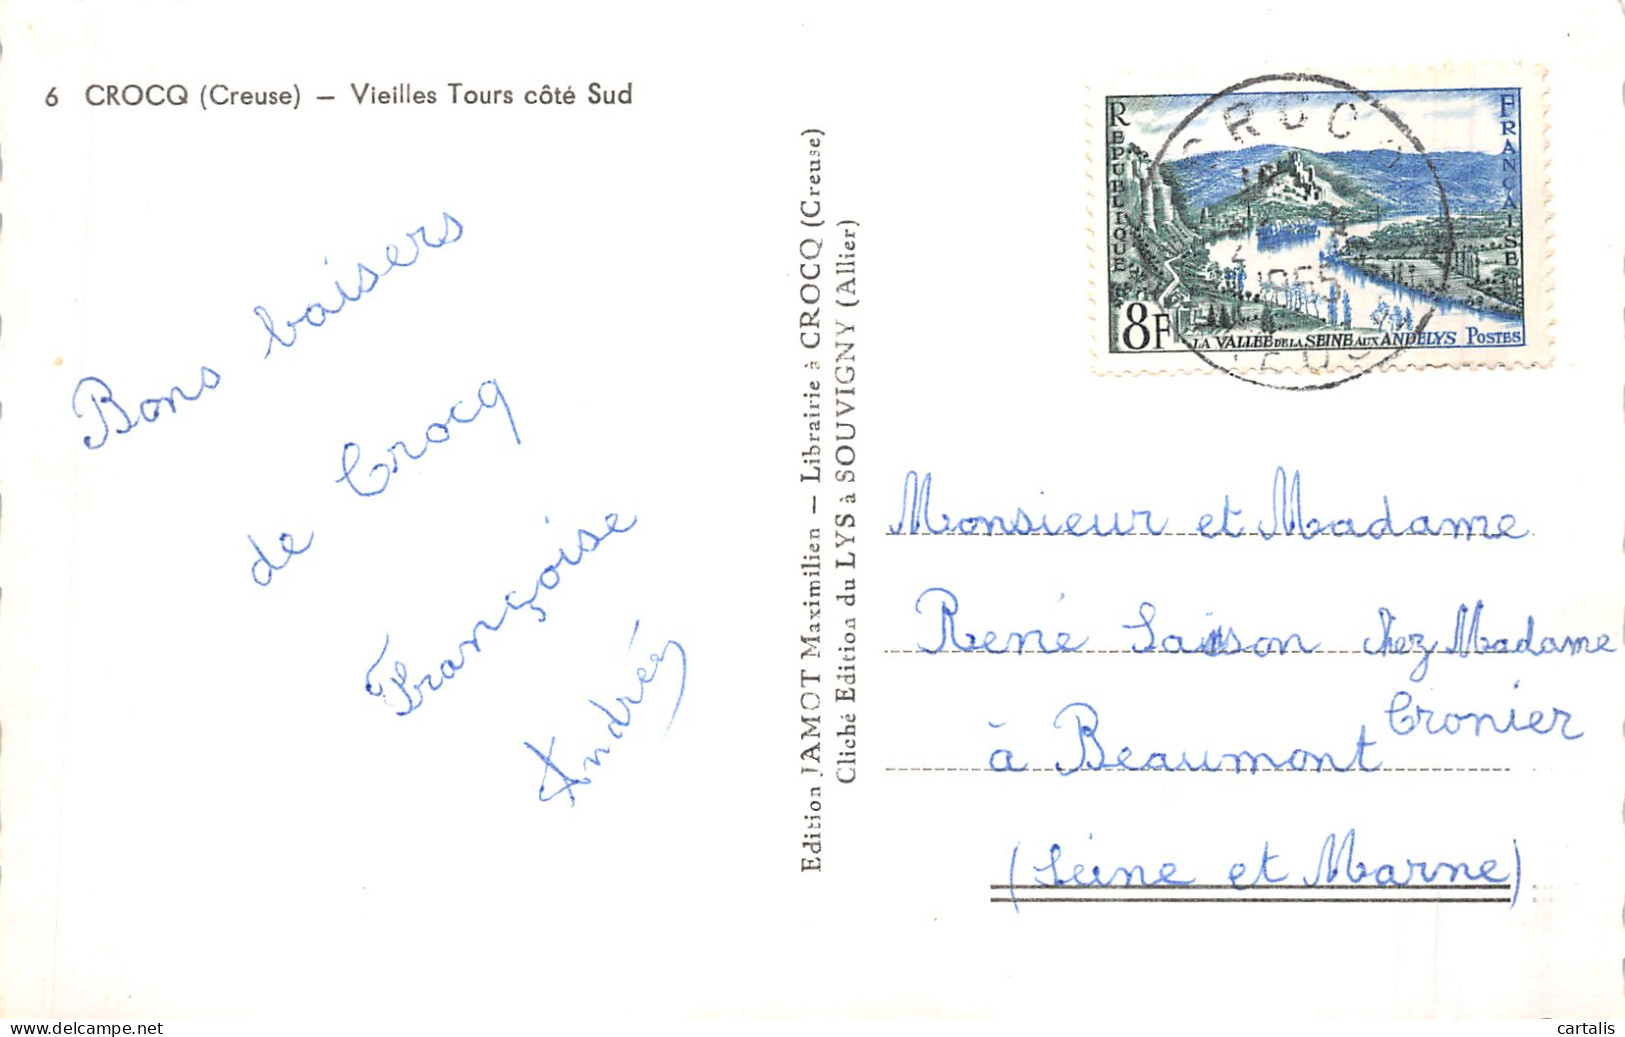 6 CROCQ (Creuse) — Vieilles Tours côté Sud
Bons baisers
de Crocq
Françoise
Andrée
Edition JAMOT Maximilien — Librairie à CROCQ (Creuse)
Cliché Edition du LYS à SOUVIGNY (Allier)
REPUBLIQUE
FRANÇAISE
8F
LA VALLEE DE LA SEINE AUX ANDELYS POSTES
CROCQ
1955
Monsieur et Madame
René Saison chez Madame
Cronier
à Beaumont
(Seine et Marne)
www.delcampe.net
cartalis